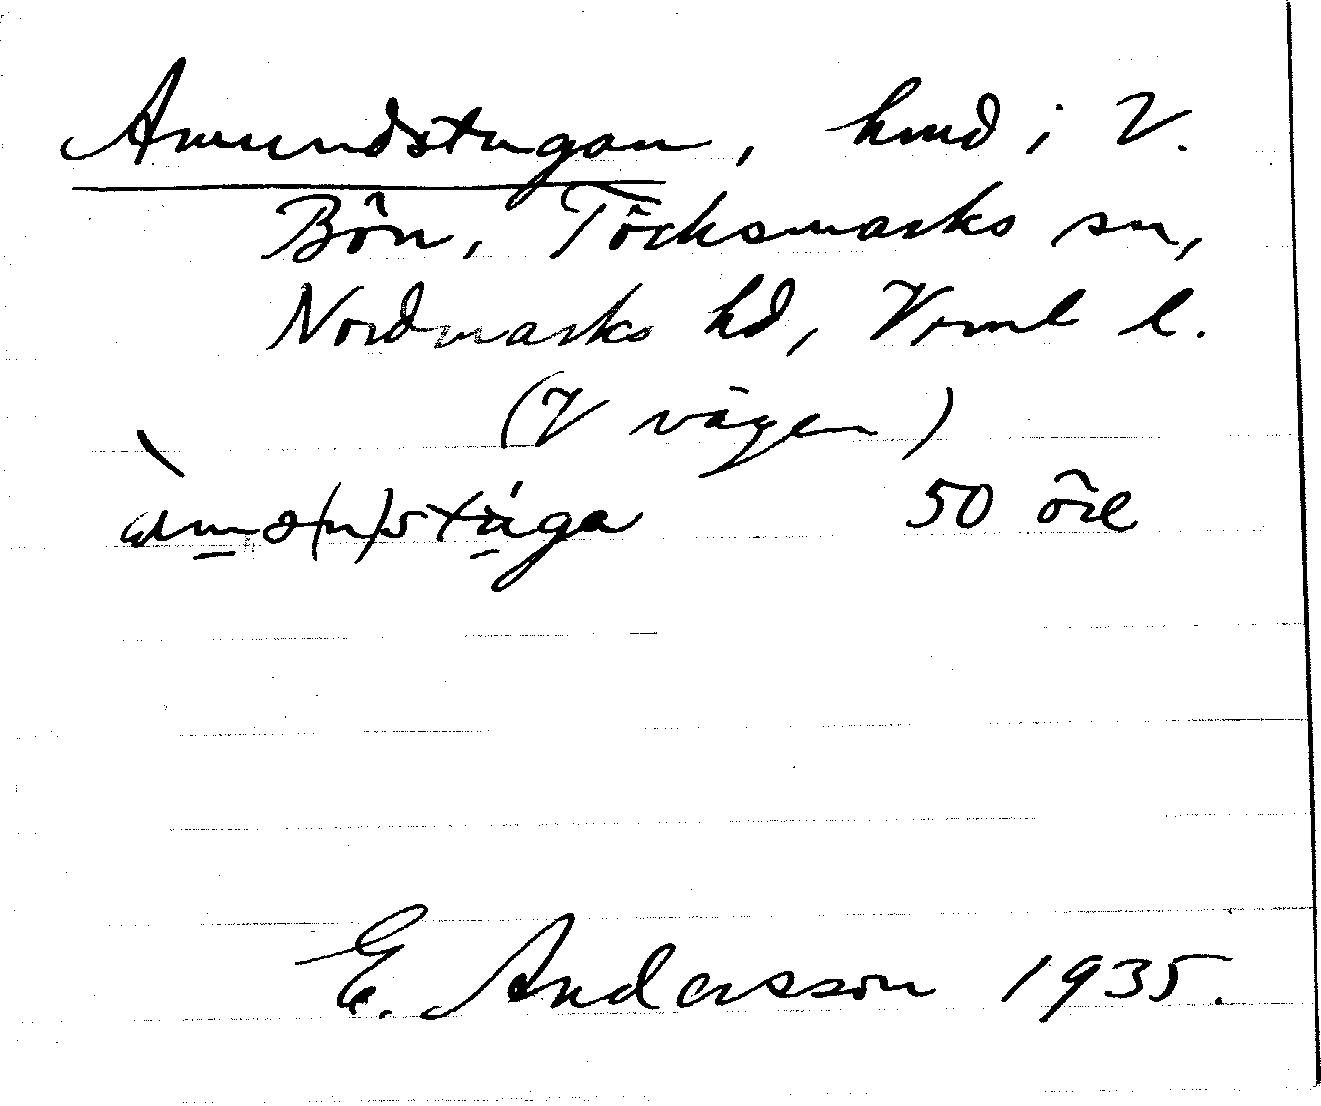 Amundstugan, hmd i V.
Bön, Töcksmarks sn,
Nordmarks hd, Vrml l.
(V vägen)
àmə(n)stúga 50 öre
E. Andersson 1935.